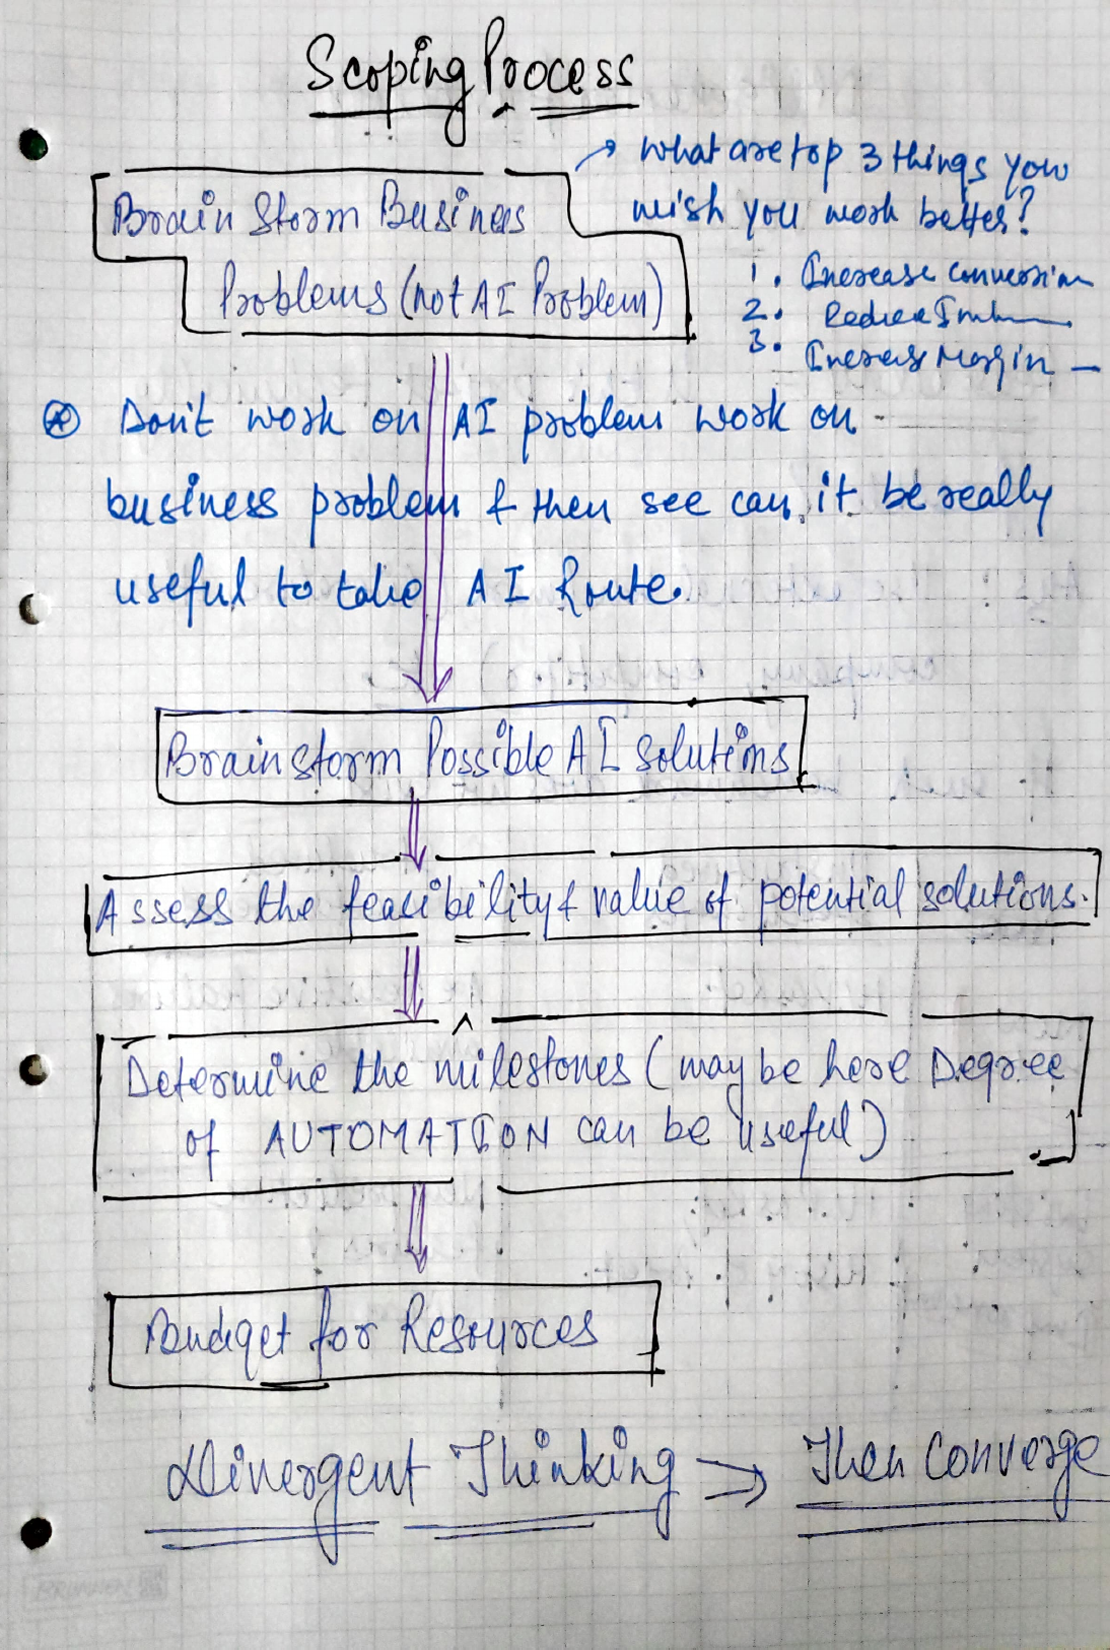 Scoping Process
Brain Storm Business
Problems (not AI Problem)
→ what are top 3 things you
wish you work better?
1. Increase conversion
2. Reduce
3. Increase Margin —
Don't work on AI problem work on -
business problem & then see can it be really
useful to take AI Route.
Brainstorm Possible AI solutions
Assess the feasibility & value of potential solutions.
Determine the milestones (may be here Degree
of AUTOMATION can be useful)
Budget for Resources
Divergent Thinking → Then Converge